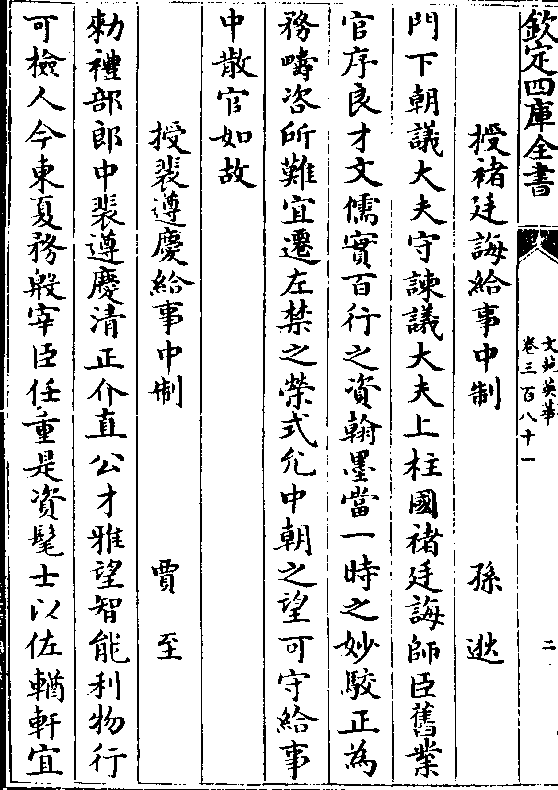 欽定四庫全書
文苑英華
卷三百八十一
二
授褚廷誨給事中制 孫逖
門下朝議大夫守諫議大夫上柱國褚廷誨師臣舊業
官序良才文儒實百行之資翰墨當一時之妙駮正為
務疇咨所難宜遷左禁之榮式允中朝之望可守給事
中散官如故
授裴遵慶給事中制 賈至
勑禮部郎中裴遵慶清正介直公才雅望智能利物行
可檢人今東夏務殷宰臣任重是資髦士以佐輶軒宜